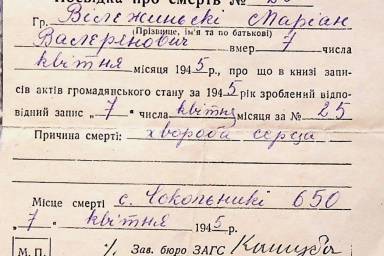 Посвідка про смерть №
Гр. Вілєжинські Маріан
(Прізвище, ім'я та по батькові)
Валєрянович вмер 7 числа
квітня місяця 1945 р., про що в книзі запи-
сів актів громадянського стану за 1945 рік зроблений відпо-
відний запис „7" числа квітня місяця за № 25
Причина смерті: хвороба серца
Місце смерті с. Чокольникі 650
„7" квітня 1945 р.
М. П. Зав. бюро ЗАГС